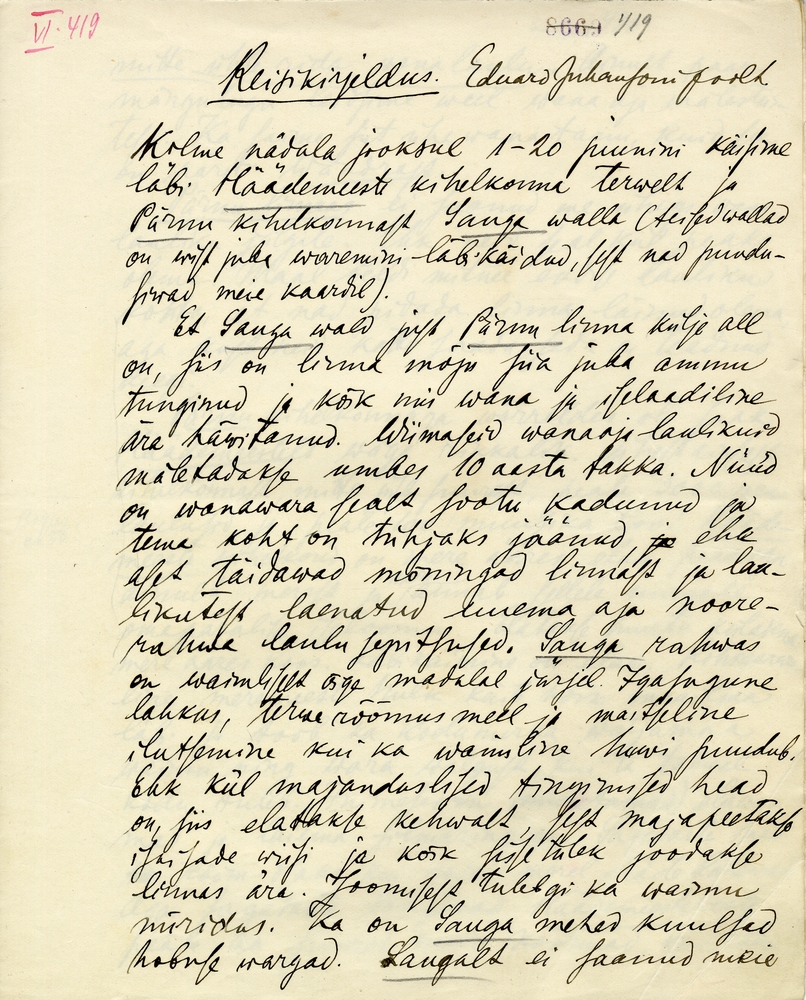 VI. 419
8669 419
Reisikirjeldus. Eduard Juhansoni poolt
Kolme nädala jooksul 1-20 juunini käisime
läbi Häädemeeste kihelkonna terwelt ja
Pärnu kihelkonnast Sauga walla (teised wallad
on wist juba waremini läbikäidud, sest nad puudu-
siwad meie kaardil).
Et Sauga wald just Pärnu linna külje all
on, siis on linna mõju siia juba ammu
tunginud ja kõik mis wana ja iselaadiline
ära häwitanud. Wiimaseid wanaaja laulikuid
mäletadakse umbes 10 aasta takka. Nüüd
on wanawara sealt sootu kadunud ja
tema koht on tühjaks jäänud, ehk
aset täidawad mõningad linnast ja lau-
likutest laenatud uuema aja noore-
rahwa laulu sepitsused. Sauga rahwas
on waimlisest õige madalal järjel. Igasugune
lahkus, terwe rõõmus meel ja maitseline
ilutsemine kui ka waimline huwi puudub.
Ehk kül majanduslised tingimised head
on, siis elatakse kehwalt, sest maja peetakse
isaisade wiisi ja kõik sissetulek joodakse
linnas ära. Joomisest tulebgi ka waimu
nüridus. Ka on Sauga mehed kuulsad
hobuse wargad. Saugalt ei saanud meie